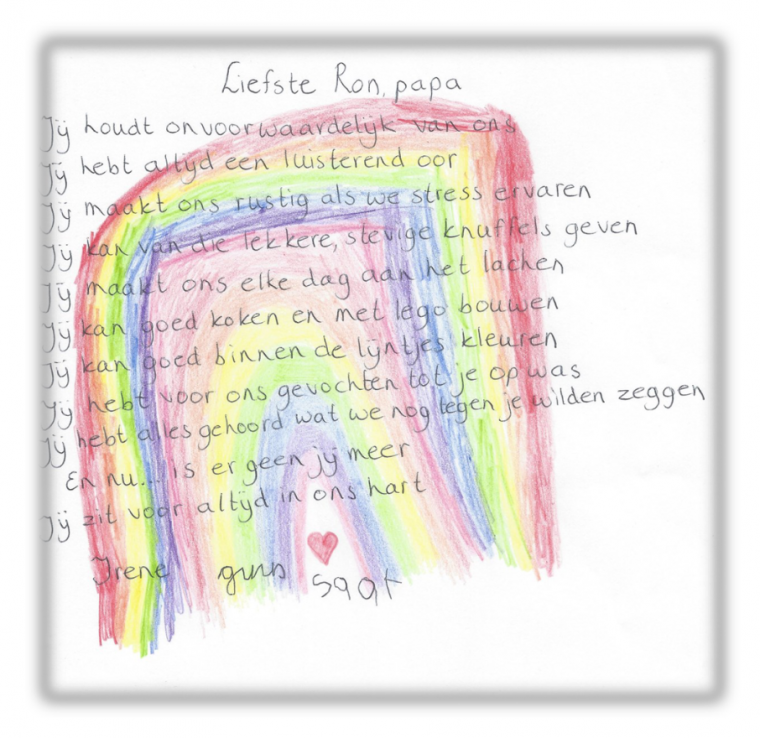 Liefste Ron, papa
Jij houdt onvoorwaardelijk van ons
Jij hebt altijd een luisterend oor
Jij maakt ons rustig als we stress ervaren
Jij kan van die lekkere, stevige knuffels geven
Jij maakt ons elke dag aan het lachen
Jij kan goed koken en met lego bouwen
Jij kan goed binnen de lijntjes kleuren
Jij hebt voor ons gevochten tot je op was
Jij hebt alles gehoord wat we nog tegen je wilden zeggen
En nu... is er geen jij meer
Jij zit voor altijd in ons hart
Irene